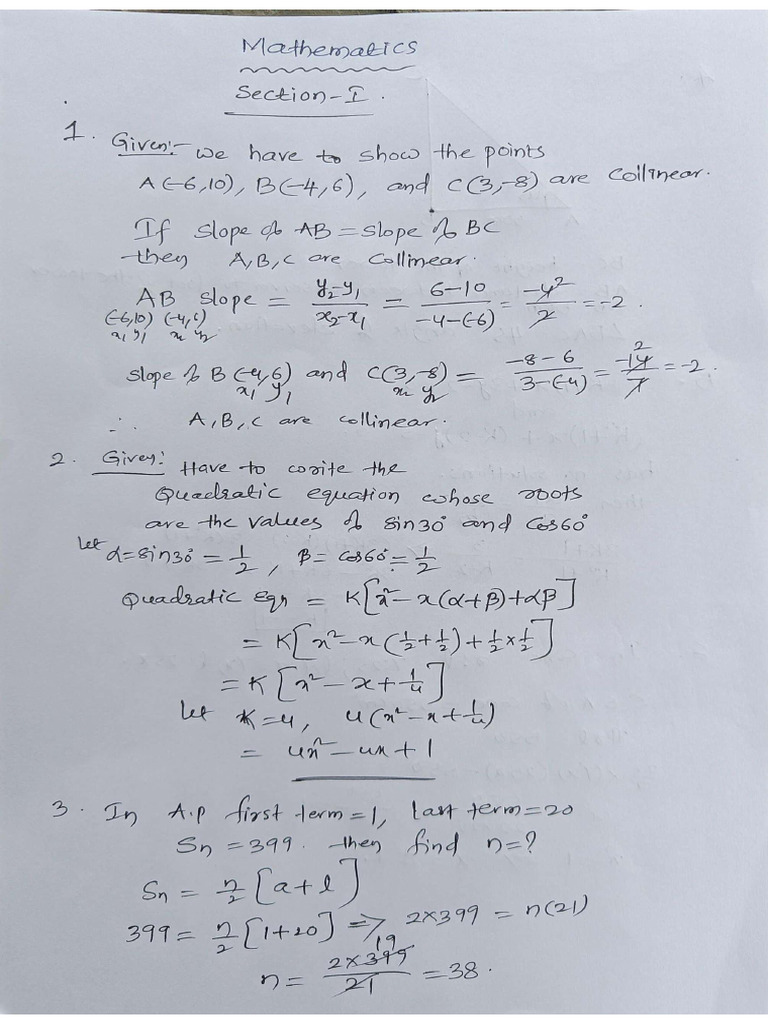 Mathematics
Section-I.
1. Given:- we have to show the points
A(-6,10), B(-4,6), and C(3,-8) are collinear.
If slope of AB = slope of BC
then A,B,C are collinear.
AB slope = y₂-y₁/x₂-x₁ = 6-10/-4-(-6) = -4²/2 = -2.
(-6,10) (-4,6)
x₁ y₁ x₂ y₂
slope of B(-4,6) and C(3,-8) = -8-6/3-(-4) = -14²/7 = -2.
x₁ y₁ x₂ y₂
∴ A,B,C are collinear.
2. Given: Have to write the
Quadratic equation whose roots
are the values of sin30° and cos60°
let α=sin30° = 1/2, β= cos60° = 1/2
Quadratic eqn = K[x²-x(α+β)+αβ]
= K[x²-x(1/2+1/2)+1/2×1/2]
= K[x²-x+1/4]
let K=4, 4(x²-x+1/4)
= 4x²-4x+1
3. In A.P first term=1, last term=20
Sn = 399. then find n=?
Sn = n/2[a+l]
399 = n/2[1+20] => 2×399 = n(21)
n = 2×399¹⁹/21 = 38.